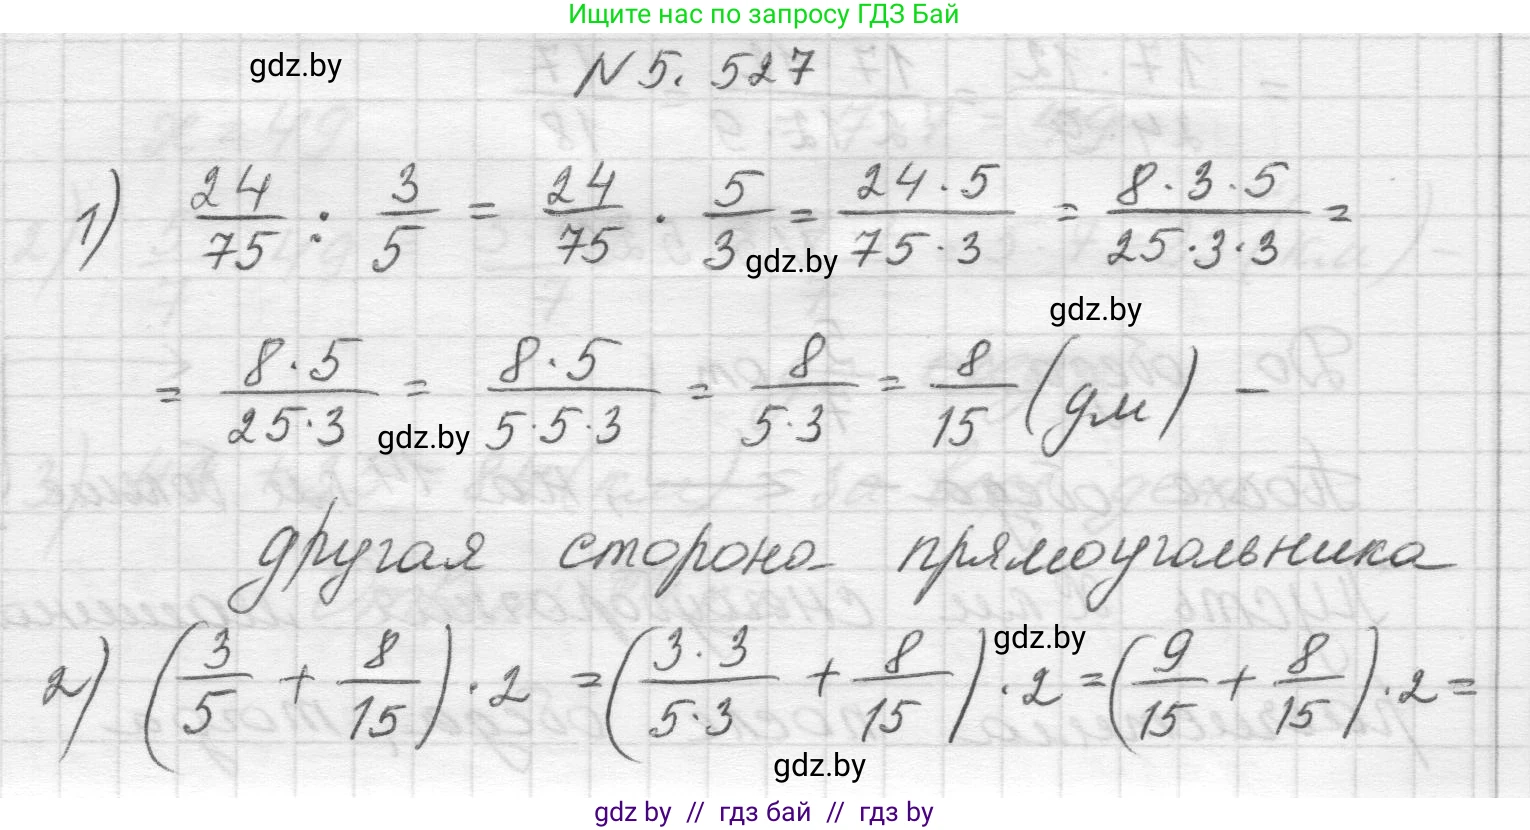 Ищите нас по запросу ГДЗ Бай
gdz.by
N 5. 527
1) 24/75 : 3/5 = 24/75 · 5/3 = 24·5/75·3 = 8·3·5/25·3·3 =
gdz.by
gdz.by
= 8·5/25·3 = 8·5/5·5·3 = 8/5·3 = 8/15 (дм) –
gdz.by
другая сторона прямоугольника
gdz.by
2) (3/5 + 8/15) · 2 = (3·3/5·3 + 8/15) · 2 = (9/15 + 8/15) · 2 =
gdz.by
gdz by // гдз бай // гдз by